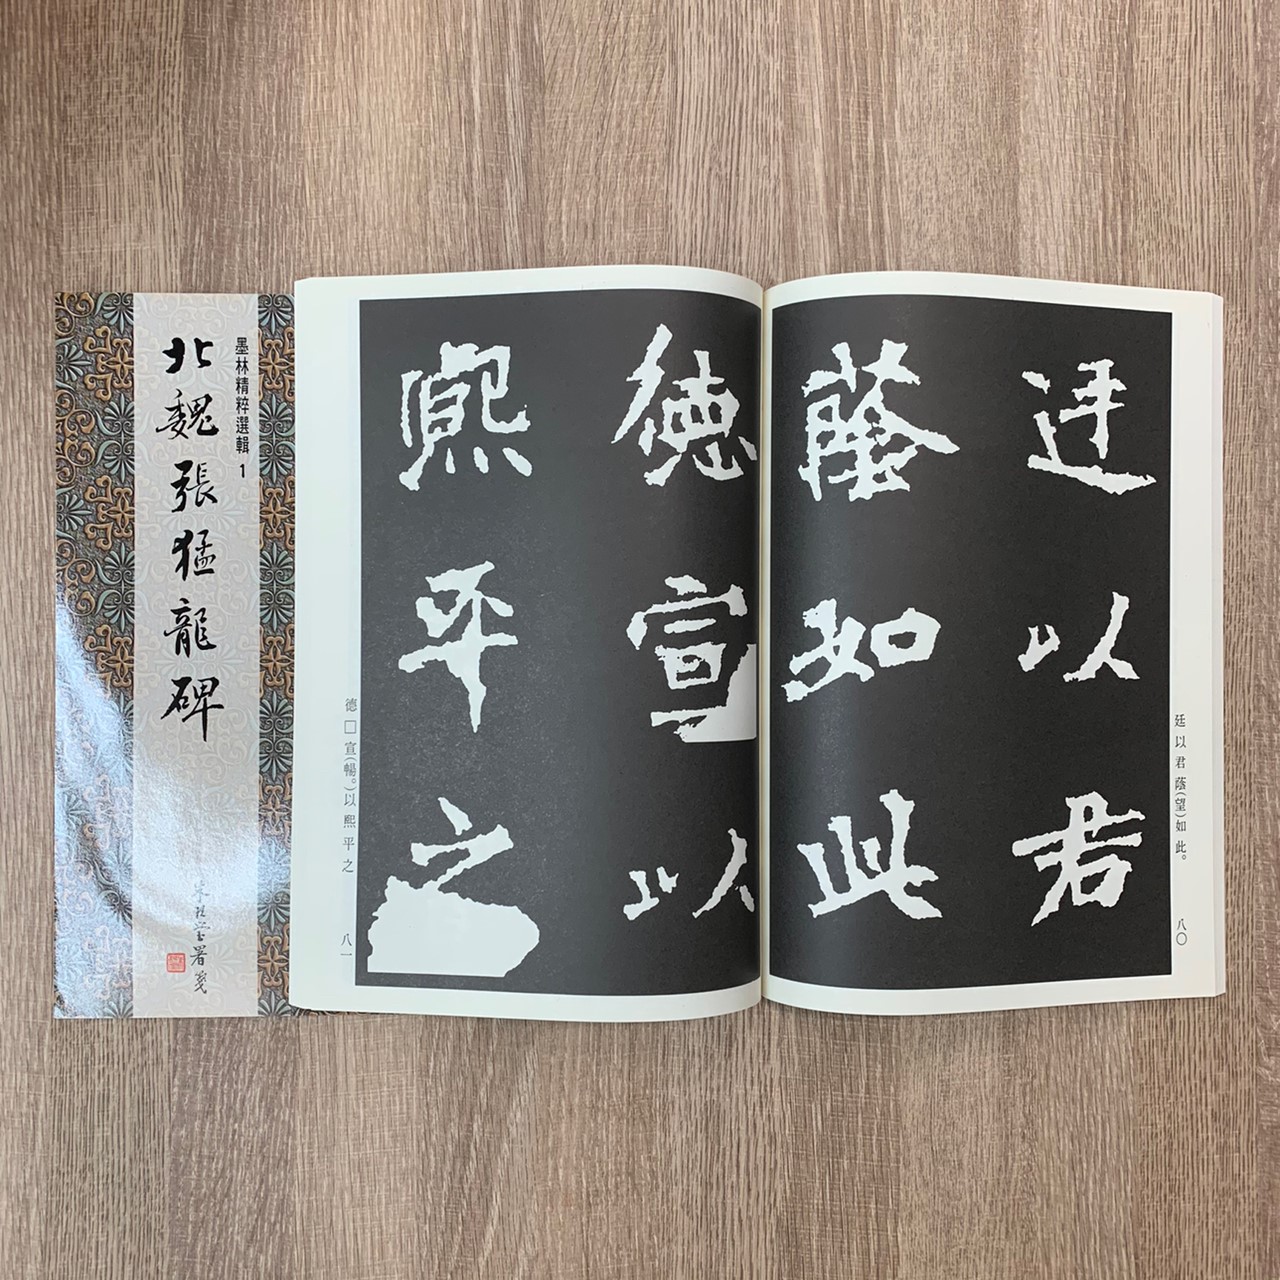 墨林精粹選輯 1
北魏張猛龍碑
署箋
廷以君
蔭如此
德宣以
熙平之
廷以君蔭(望)如此。
八〇
德□宣(暢。)以熙平之
八一